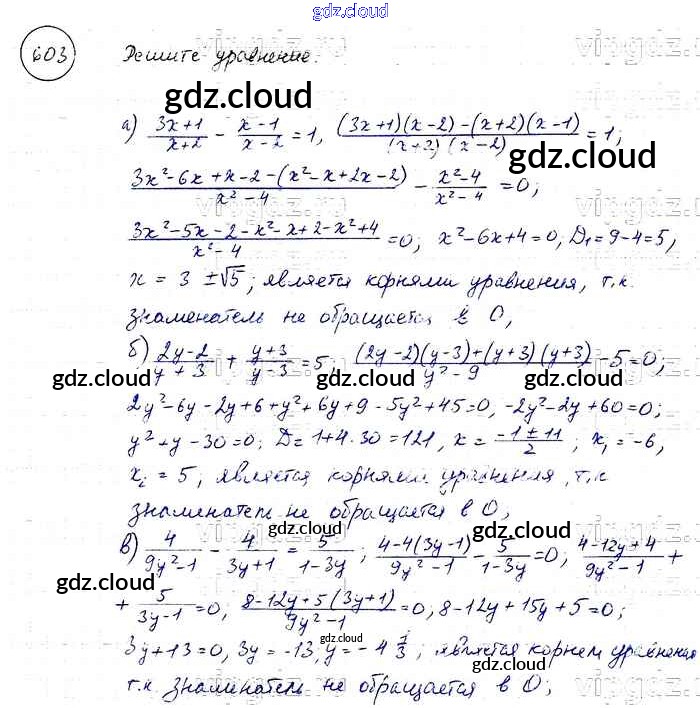 gdz.cloud
603 Решите уравнение.
gdz.cloud
а) (3x+1)/(x+2) - (x-1)/(x-2) = 1, ((3x+1)(x-2)-(x+2)(x-1))/((x+2)(x-2)) = 1;
gdz.cloud
(3x²-6x+x-2-(x²-x+2x-2))/(x²-4) - (x²-4)/(x²-4) = 0;
(3x²-5x-2-x²-x+2-x²+4)/(x²-4) = 0; x²-6x+4=0, D₁=9-4=5,
x = 3 ±√5; является корнями уравнения, т.к.
знаменатель не обращается в 0,
gdz.cloud
б) (2y-2)/(y+3) + (y+3)/(y-3) = 5; ((2y-2)(y-3)+(y+3)(y+3))/(y²-9) - 5 = 0;
gdz.cloud gdz.cloud
2y²-6y-2y+6+y²+6y+9-5y²+45=0, -2y²-2y+60=0;
y²+y-30=0; D=1+4·30=121, x = (-1±11)/2; x₁=-6,
x₂ = 5; является корнями уравнения, т.к
знаменатель не обращается в 0,
gdz.cloud gdz.cloud
в) 4/(9y²-1) - 4/(3y+1) = 5/(1-3y); (4-4(3y-1))/(9y²-1) - 5/(1-3y) = 0, (4-12y+4)/(9y²-1) +
gdz.cloud gdz.cloud
+ 5/(3y-1) = 0, (8-12y+5(3y+1))/(9y²-1) = 0, 8-12y+15y+5=0;
gdz.cloud
3y+13=0, 3y=-13, y=-4 1/3; является корнем уравнения
т.к. знаменатель не обращается в 0;